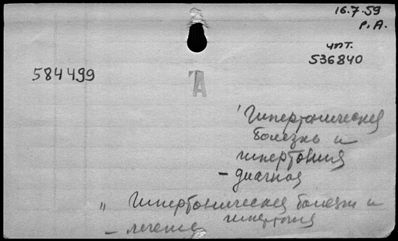 16.7.59
Р.А.
чпт.
536840
584499
А
Гипертоническая
болезнь и
гипертония
– диагноз
" Гипертоническая болезнь и
– лечение гипертония